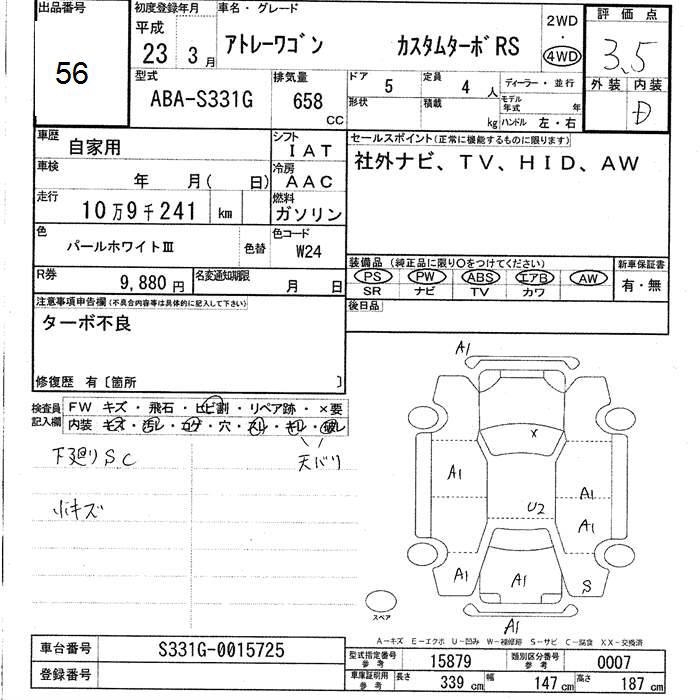 出品番号
56
初度登録年月
平成
23 3月
車名・グレード
アトレーワゴン カスタムターボRS
2WD
・
4WD
評価点
3.5
外装 内装
D
型式
ABA-S331G
排気量
658
CC
ドア
5
定員
4人
形状
積載
kg
ディーラー・並行
モデル年式 年
ハンドル 左・右
車歴
自家用
シフト
IAT
車検
年 月( 日)
冷房
AAC
走行
10万9千241 km
燃料
ガソリン
色
パールホワイトⅢ
色替
色コード
W24
R券
9,880円
名変通知期限
月 日
セールスポイント(正常に機能するものに限ります)
社外ナビ、TV、HID、AW
装備品(純正品に限り○をつけてください)
PS PW ABS エアB AW
SR ナビ TV カワ
新車保証書
有・無
後日品
注意事項申告欄(不具合内容等は具体的に記入して下さい)
ターボ不良
修復歴 有〔箇所 〕
検査員記入欄
FW キズ・飛石・ヒビ割・リペア跡・×要
内装 キズ・汚レ・コゲ・穴・スレ・キレ・破レ
下廻りSC
天バリ
小キズ
A1
X
A1
U2
A1
A1
A1
A1
S
A1
スペア
A-キズ E-エクボ U-凹み W-補修跡 S-サビ C-腐食 XX-交換済
車台番号
S331G-0015725
登録番号
型式指定番号
参考
15879
類別区分番号
参考
0007
車庫証明用
参考
長さ
339 cm
幅
147 cm
高さ
187 cm